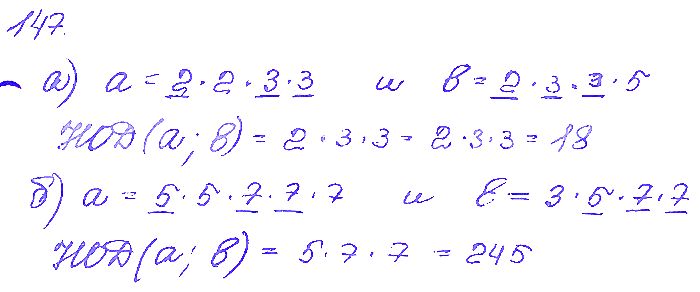 147.
а) а = 2 · 2 · 3 · 3 и в = 2 · 3 · 3 · 5
НОД(а; в) = 2 · 3 · 3 = 2 · 3 · 3 = 18
б) а = 5 · 5 · 7 · 7 · 7 и в = 3 · 5 · 7 · 7
НОД(а; в) = 5 · 7 · 7 = 245